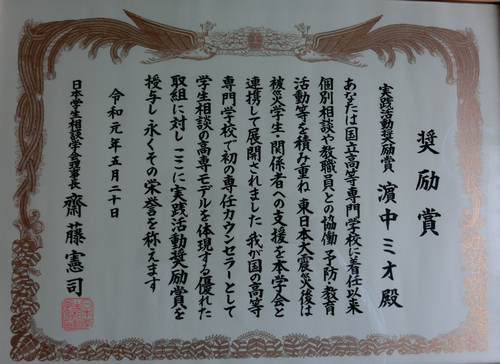 奨励賞
実践活動奨励賞 濵中ミオ殿
あなたは国立高等専門学校に着任以来
個別相談や教職員との協働 予防・教育
活動等を積み重ね 東日本大震災後は
被災学生・関係者への支援を本学会と
連携して展開されました 我が国の高等
専門学校で初の専任カウンセラーとして
学生相談の高専モデルを体現する優れた
取組に対し ここに実践活動奨励賞を
授与し 永くその栄誉を称えます
令和元年五月二十日
日本学生相談学会理事長 齋藤憲司